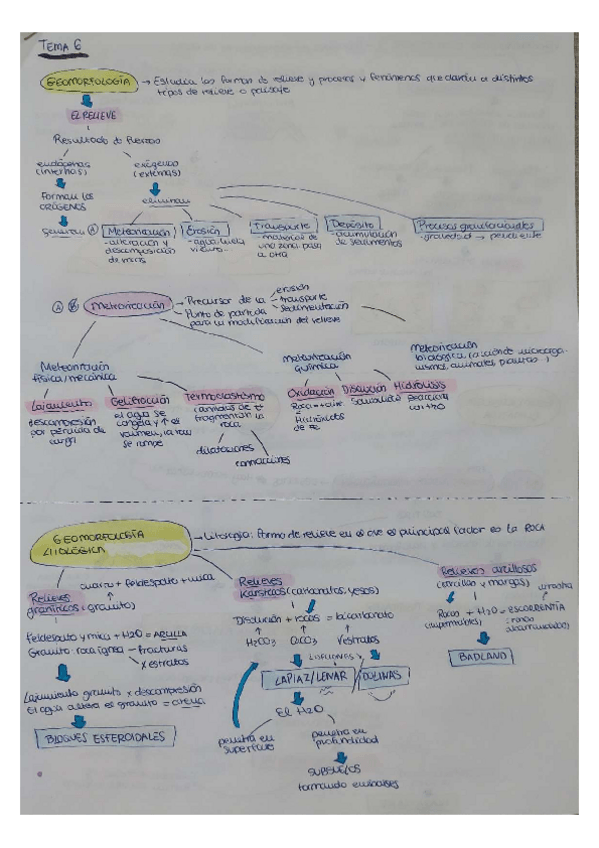 TEMA 6
GEOMORFOLOGÍA → Estudia las formas de relieve y procesos y fenómenos que dan lugar a distintos
tipos de relieve o paisaje
EL RELIEVE
Resultado de fuerzas
endógenas
(internas)
exógenas
(externas)
Forman los
ORÓGENOS
eliminan
Meteorización
-alteración y
descomposición
de rocas
Erosión
-agua, hielo
viento-
Transporte
-material de
una zona pasa
a otra
Depósito
-acumulación
de sedimentos
Procesos gravitacionales
-gravedad → pendiente
Meteorización
- Precursor de la
erosión
transporte
sedimentación
- Punto de partida
para la modificación del relieve
Meteorización
física/mecánica
Lajamiento
descompresión
por pérdida de
carga
Gelifracción
el agua se
congela y ↑ el
volumen, la roca
se rompe
Termoclastismo
cambios de tª
fragmentan la
roca
dilataciones
contracciones
Meteorización
química
Oxidación
Roca + aire
=
Hidróxidos
de Fe
Disolución
Hidrólisis
Reacciona
con H2O
Meteorización
biológica, (acción de microorga-
nismos, animales, plantas)
GEOMORFOLOGÍA
LITOLÓGICA
→ Litología: forma de relieve en el que el principal factor es la ROCA
cuarzo + feldespato + mica
Relieves
graníticos (granito)
Feldespato y mica + H2O = ARCILLA
Granito: roca ígnea
- fracturas
x estratos
Lajamiento granito x descompresión
El agua altera el granito = arena
BLOQUES ESFEROIDALES
Relieves
Kársticos (carbonatos, yesos)
Disolución + rocas = bicarbonato
H2CO3
CaCO3
x estratos
LAPIAZ/LENAR
DOLINAS
El H2O
penetra en
superficie
penetra en
profundidad
SUBSUELOS
formando
Relieves arcillosos
(arcillas y margas)
Rocas
(impermeables)
+ H2O = ESCORRENTÍA
BADLAND